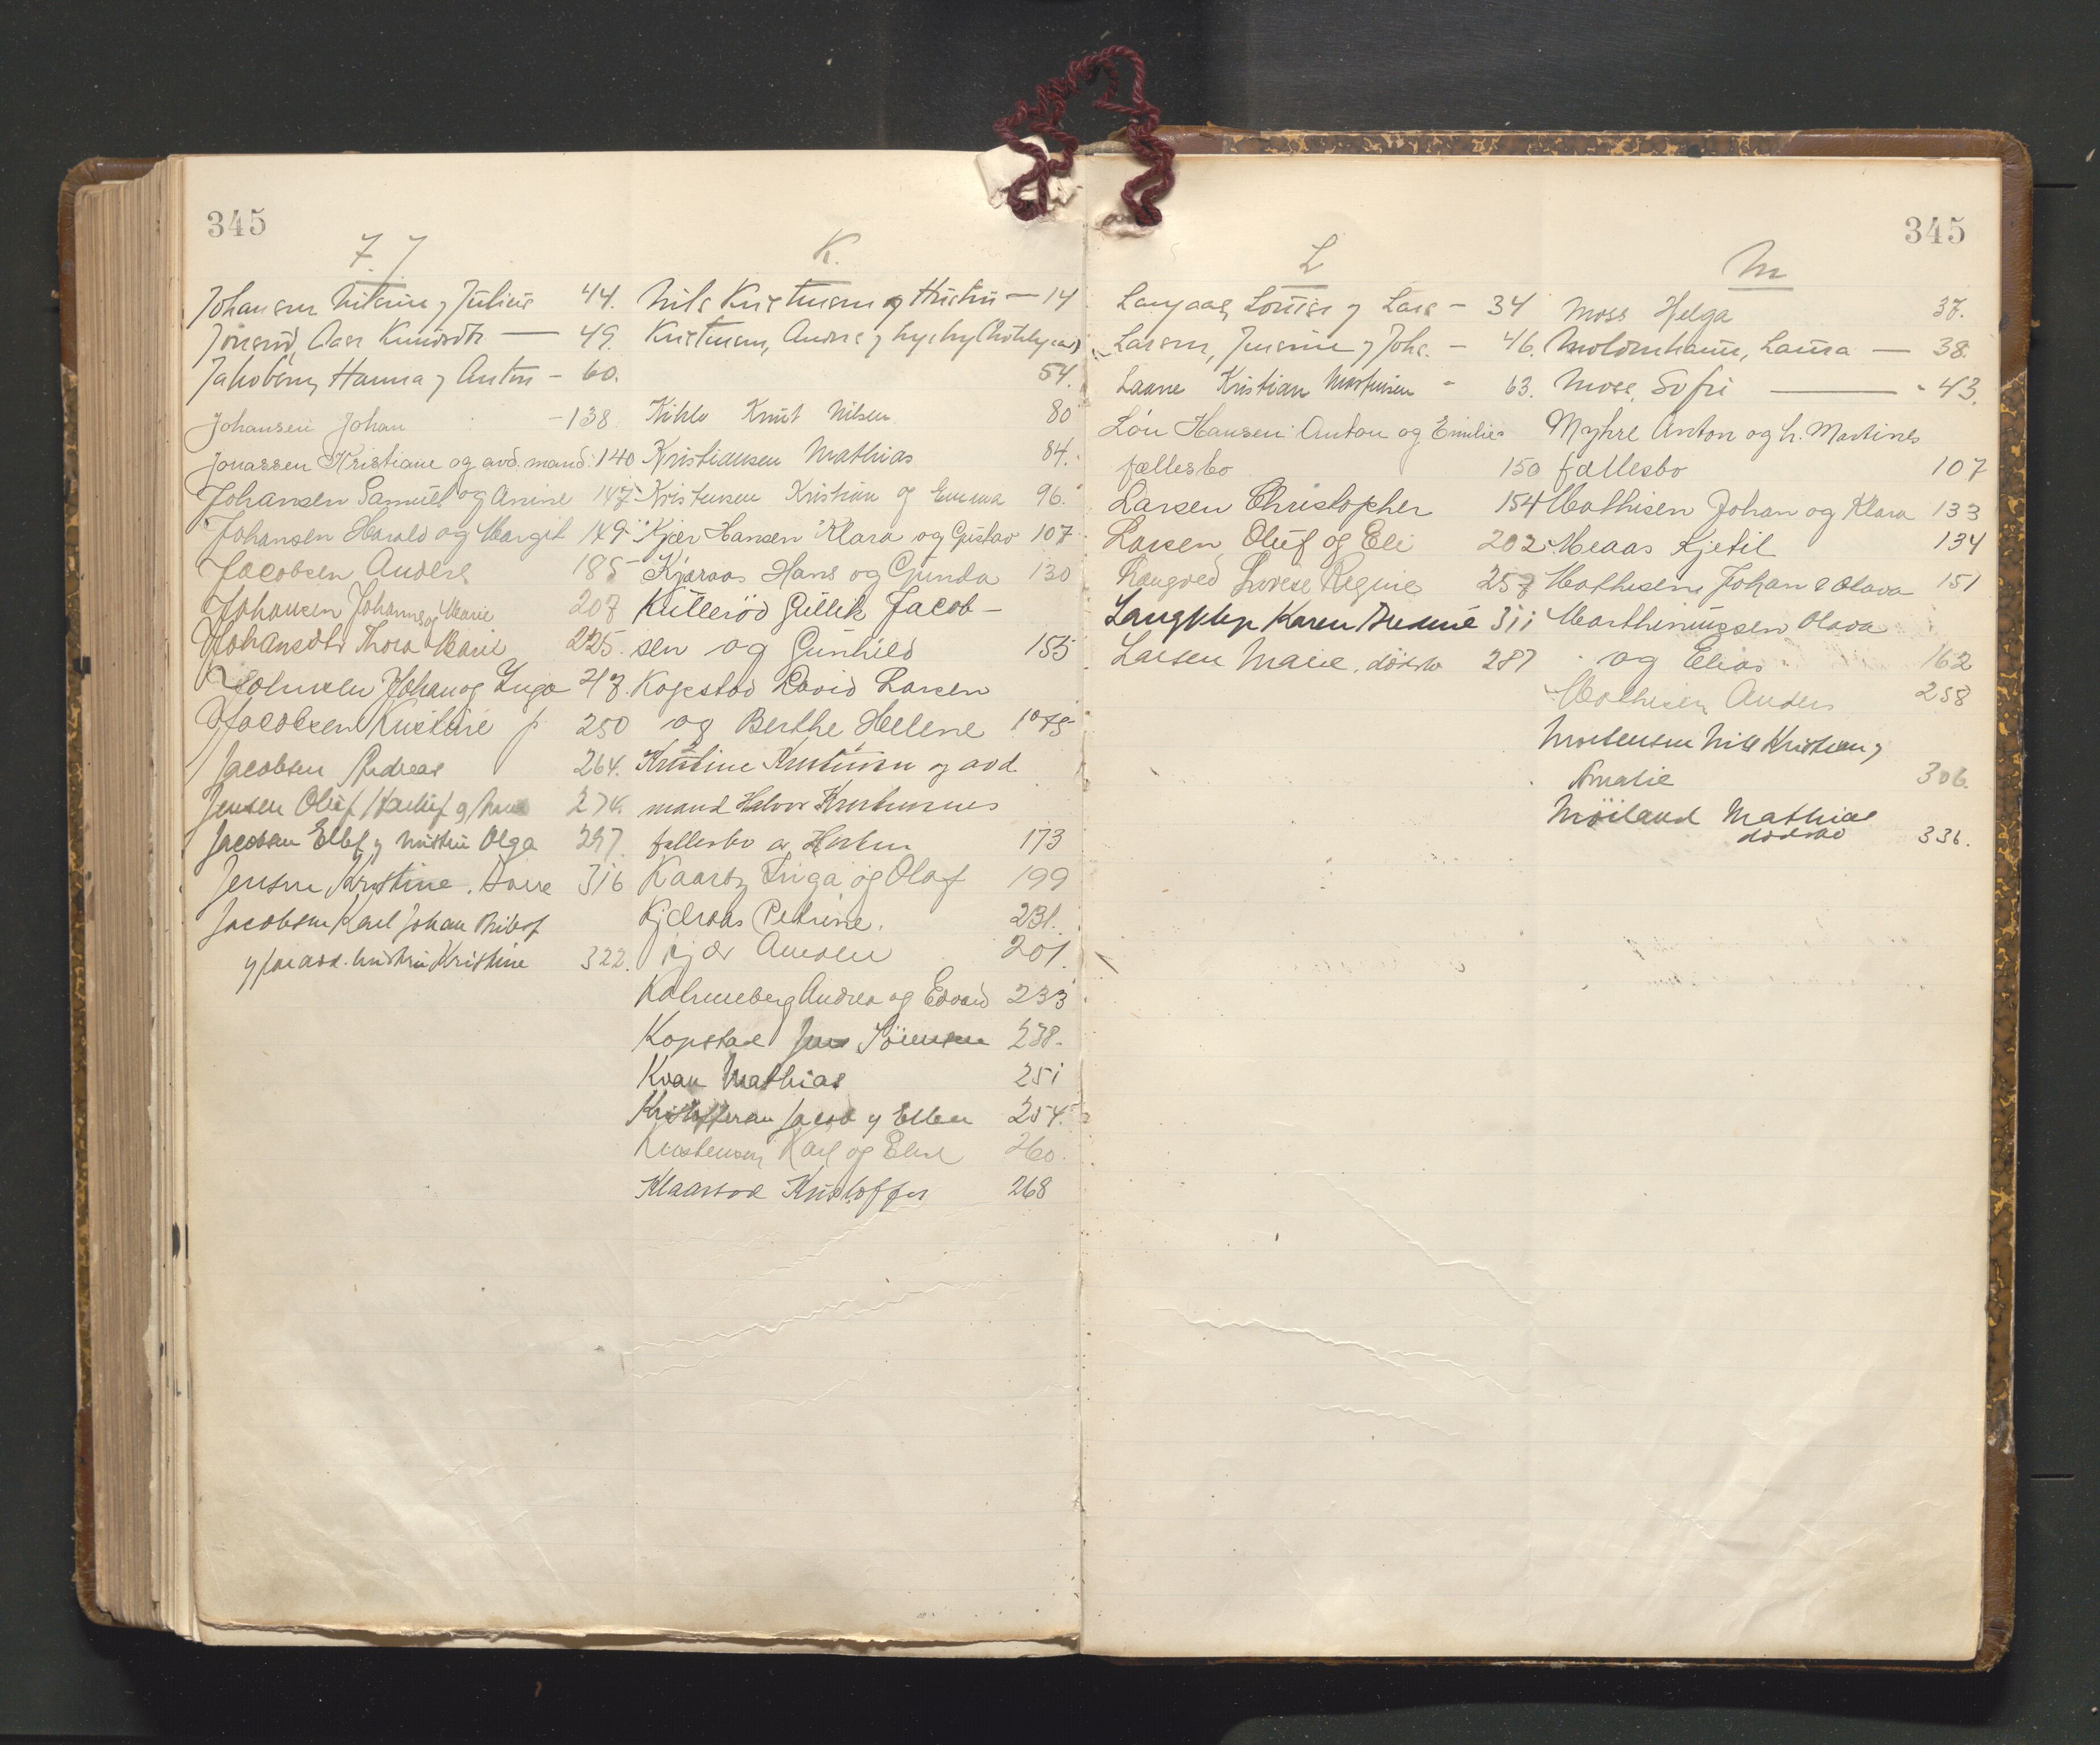 345
J. J.
Johansen Nilsine og Julius 44.
Jonsrud, Aase Knudsdtr — 49.
Jakobsen, Hanna og Anton - 60.
Johansen Johan - 138.
Jonassen Kristiane og avd. mand 140
Johansen Samuel og Anine 147
Johansen Harald og Margit 149
Jacobsen Anders 185
Johansen Johannes og Marie 207
Johansdtr Thora Marie 225.
Johansen Johan og Inga
Jacobsen Kristine 250
Jacobsen Andreas 264.
Jensen Oluf 274.
Jacobsen Ellef og hustru Olga 297
Jensen Kristine. 316
Jacobsen Karl Johan
og hustru Kristine 322.
K.
Nils Kristensen og Hustru — 14
Kristensen, Andrs og
54.
Kihle Knut Nilsen 80
Kristiansen Mathias 84.
Kristensen Kristian og Emma 96.
Kjær Hansen Klara og Gustav 107
Kjæraas Hans og Gunda 130
Kullerød Gullik Jacob-
sen og Gunhild 155
Kopstad David Larsen
og Berthe Helene
Kristine Kristensen og avd.
mand Halvor Kristensens
fællesbo av Horten 173
Kaarby Inga og Olaf 199
Kjæraas Petrine. 231.
Kjær Amsen 201.
Kolmeberg Andrea og Edvard 233
Kopstad Jens Sörensen 238.
Kvan Mathias 251
Kristoffersen Jacob og Ellen 254.
Kristensen Karl og Elise 260.
Klaarsod Kristoffer 268
345
L
Langaas, Louise og Lars - 34
Larsen, Jensine og Johs. - 46.
Laane Kristian Martinsen - 63.
Löu Hansen Anton og Emilies
fællesbo 150
Larsen Christopher 154
Larsen, Oluf og Eli 202
Langved Lovise Regine 257
Langklep Karen 311
Larsen Marie, dödsbo 287
M
Moss Helga 37.
Moldenhauer, Laura — 38.
Moss, Sofie — 43.
Myhre Anton og h. Martines
fællesbo 107
Mathisen Johan og Klara 133
Meaas Kjetil 134
Mathisen Johan & Olava 151
Marthiniussen Olava
og Elias 162
Mathisen Anders 258
Mortensen Nils Kristian og
Amalie 306.
Möiland Mathias
dödsbo 336.